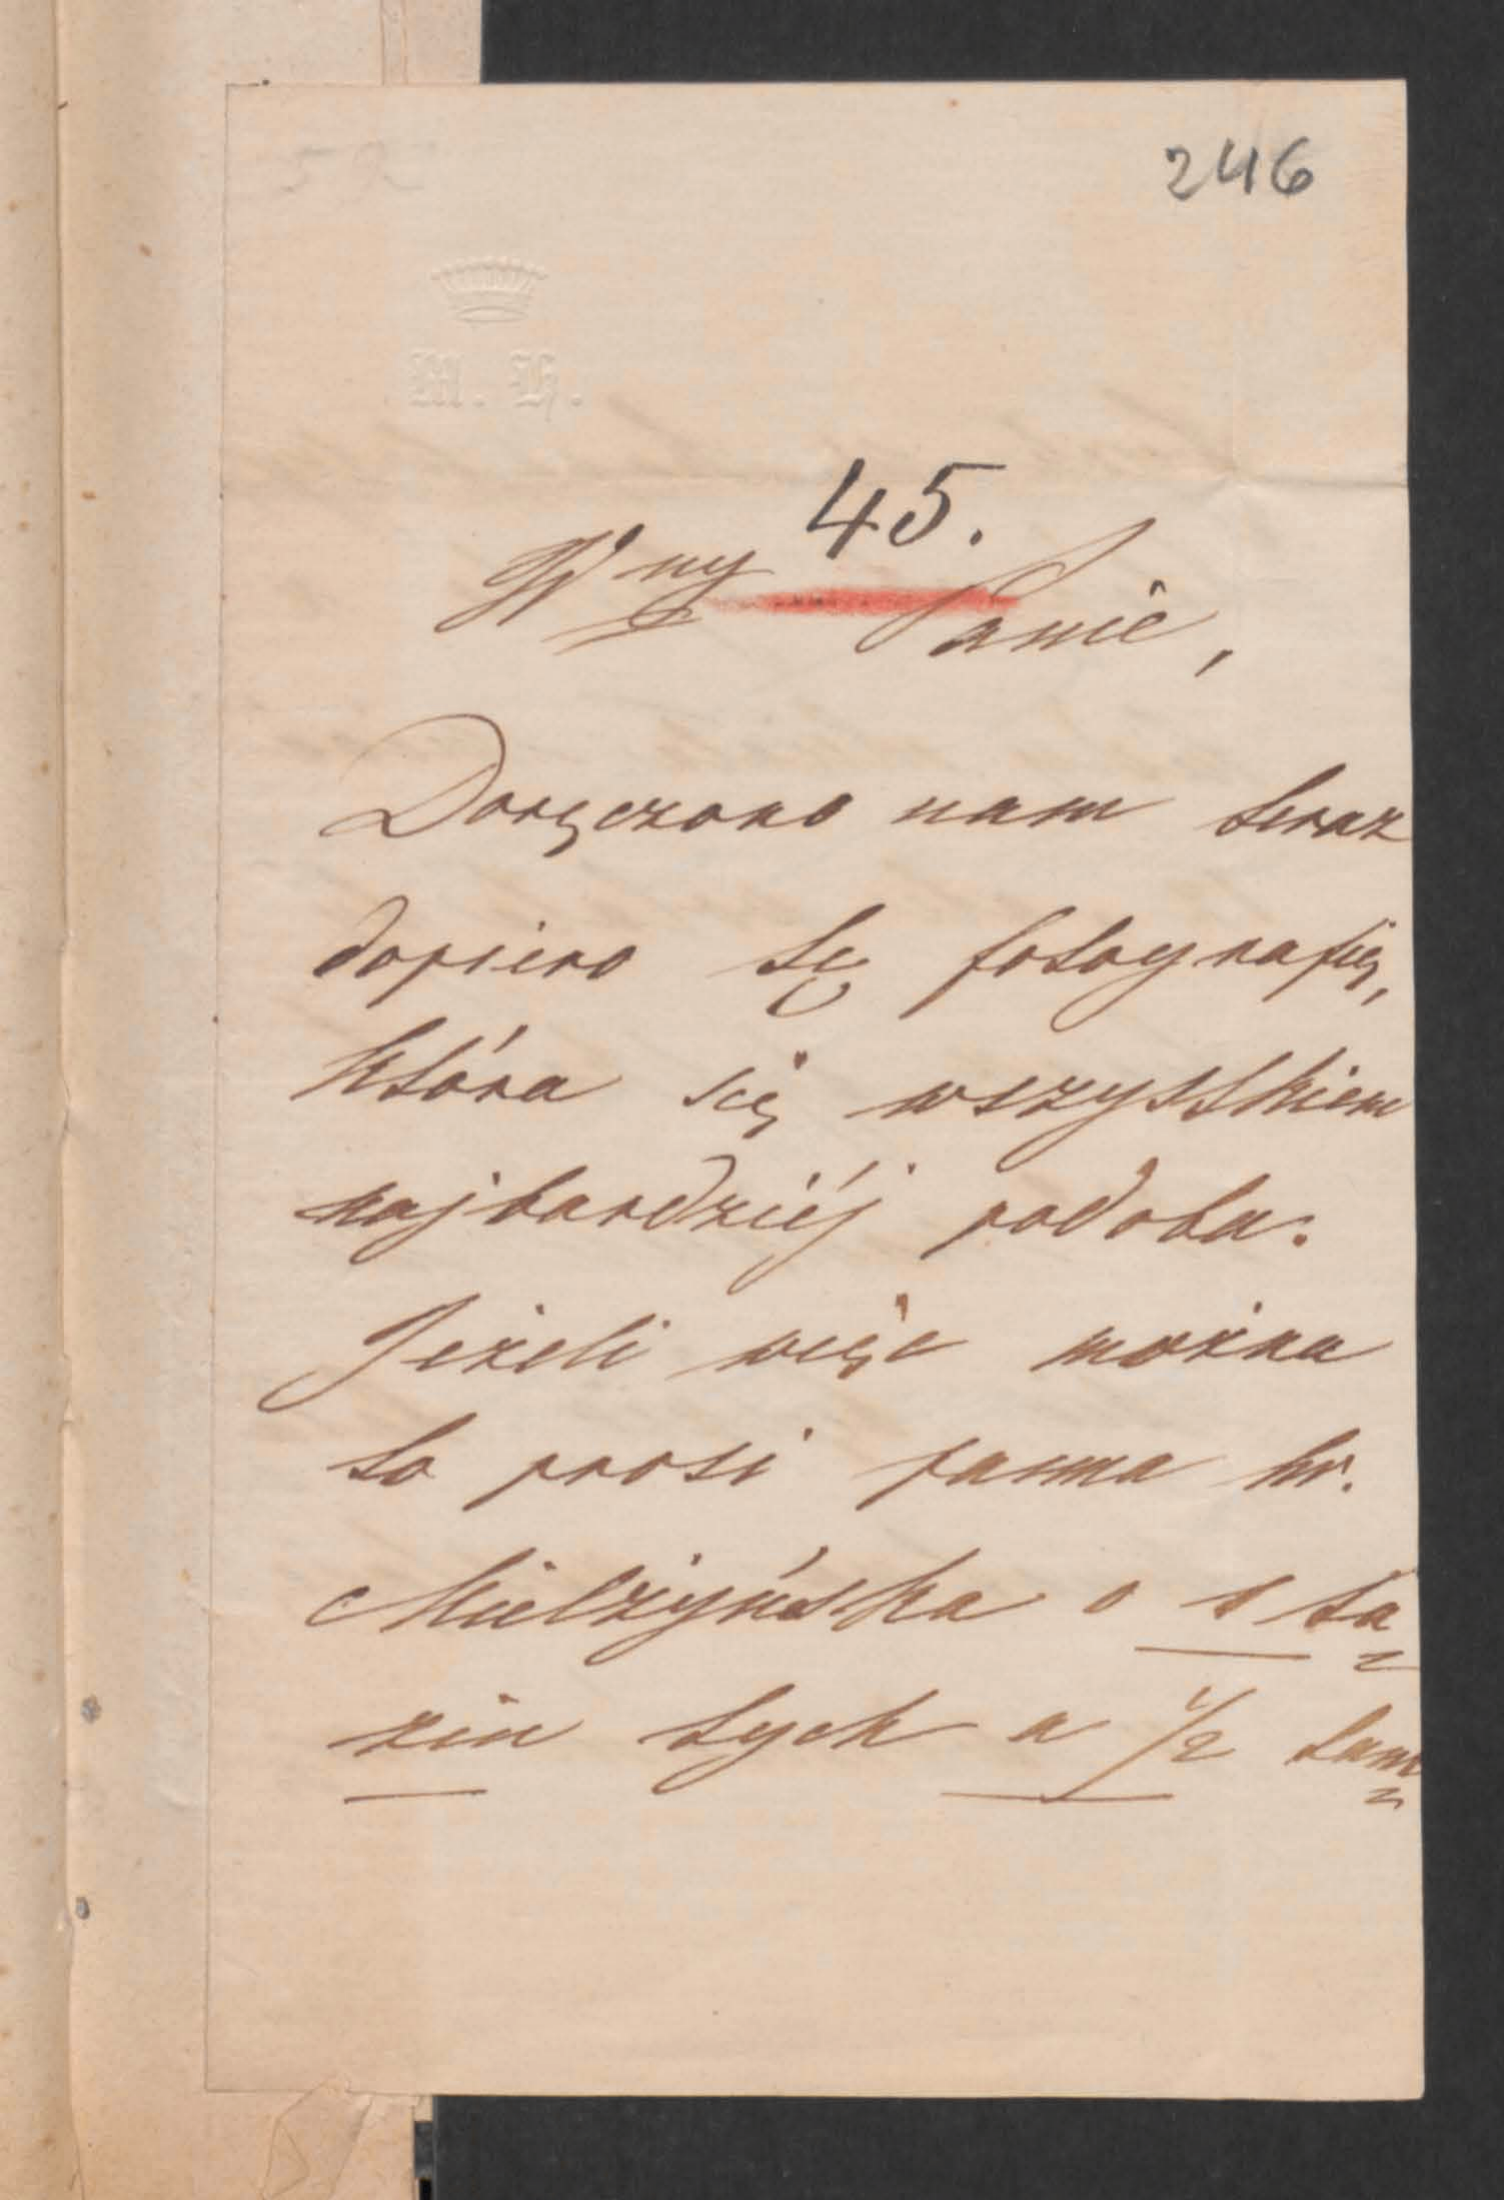 52
246
M. H.
45.
Wny Panie,
Doręczono nam teraz
dopiero tę fotografię,
która się wszystkiem
najbardziéj podoba.
Jeżeli więc można
to prosi panna hr.
Mielżyńska o 1 tu
zin tych a 1/2 tam